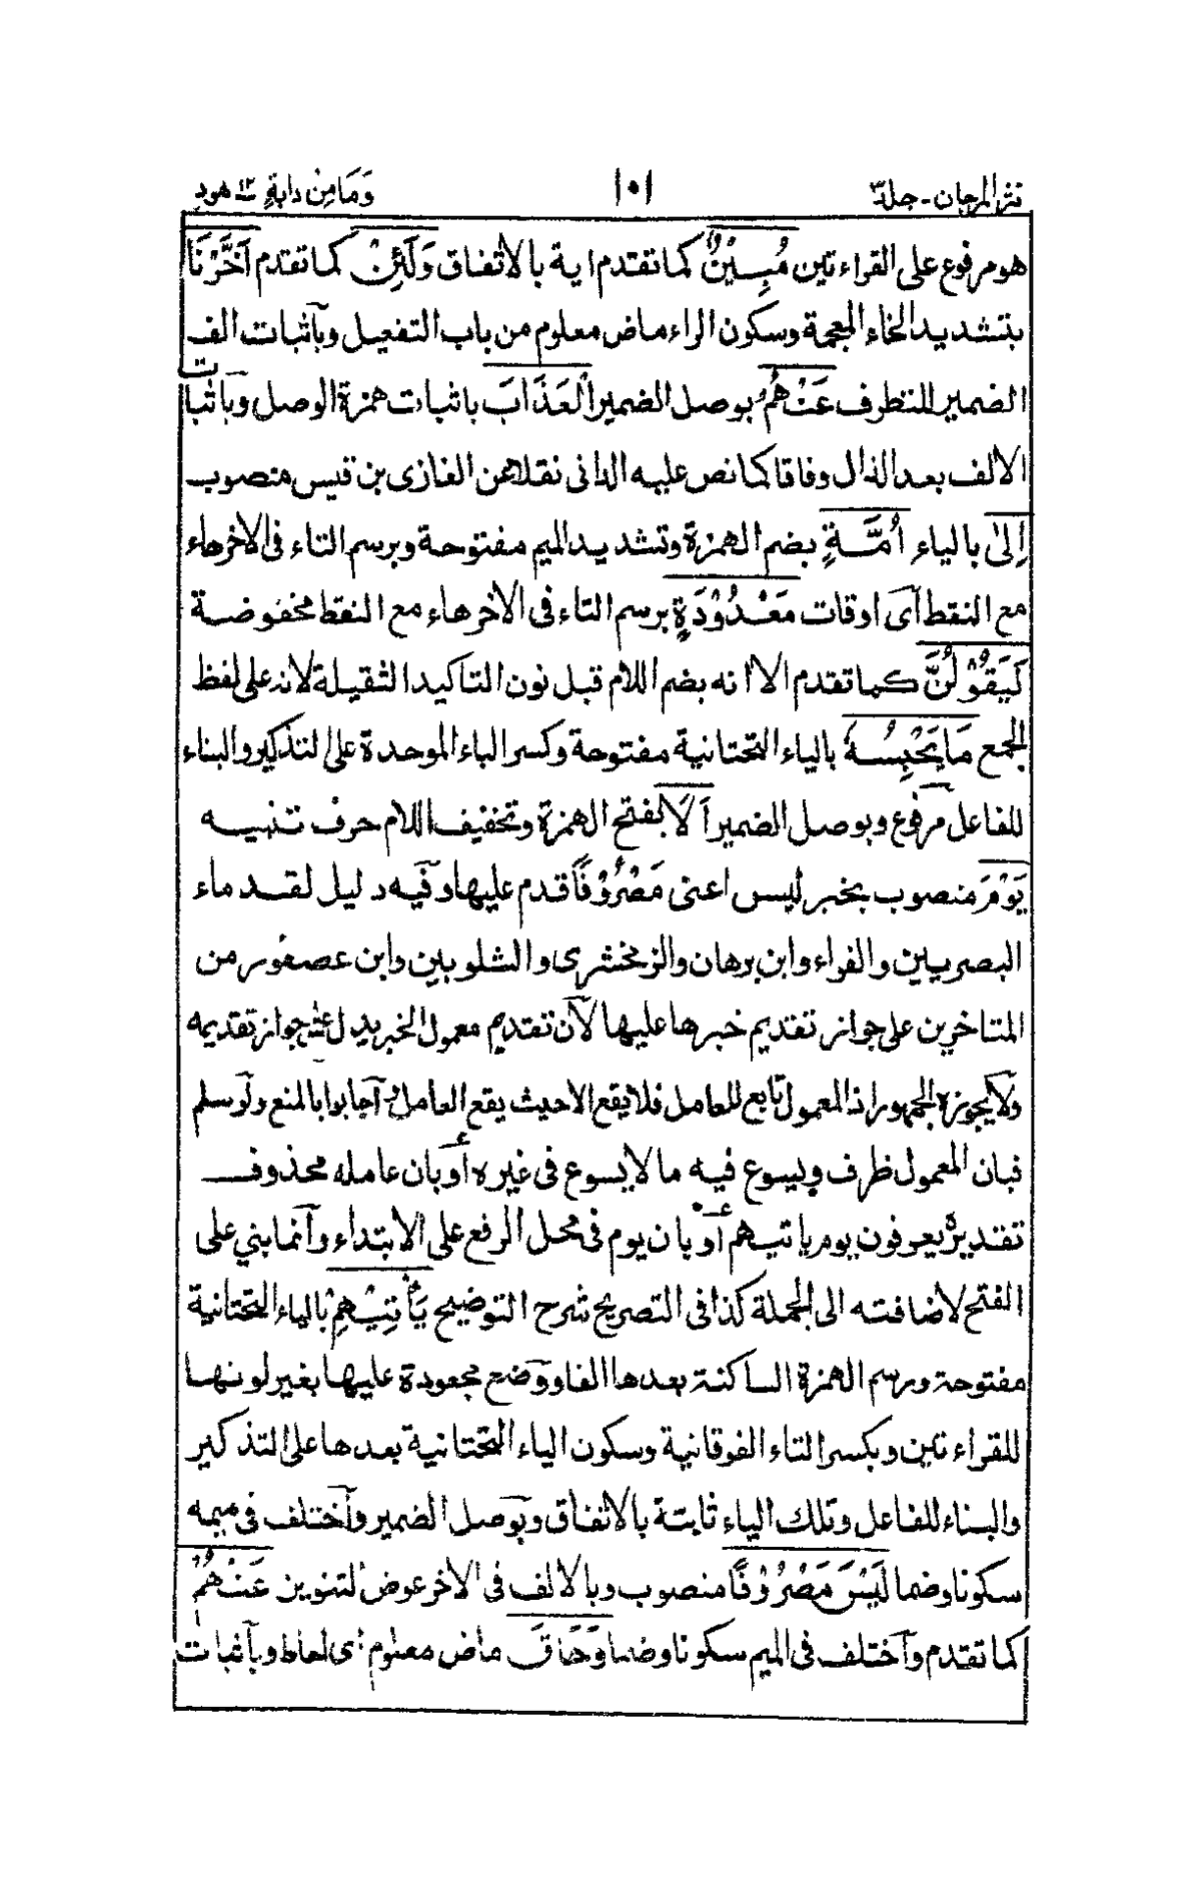 نثر المرجان - جلد ٣ ١٥١ وَمَا مِنْ دابةٍ ١٢ هود
هو مرفوع على القراءتين مُبِيْنٌ كما تقدم اية بالاتفاق وَلَئِنْ كما تقدم اَخَّرْنَا
بتشديد الخاء المعجمة وسكون الراء ماض معلوم من باب التفعيل وبآثبات الف
الضمير للتطرف عَنْهُمُ بوصل الضمير الْعَذَابَ باثبات همزة الوصل وبآثبات
الالف بعد الذال وفاقا كما نص عليه الدانى نقلا عن الغازى بن قيس منصوب
اِلىٰ بالياء اُمَّةٍ بضم الهمزة وتشديد الميم مفتوحة وبرسم التاء فى الاخر هاء
مع النقط آى اوقات مَعْدُوْدَةٍ برسم التاء فى الاخر هاء مع النقط مخفوضة
لَيَقُوْلُنَّ كما تقدم الا انه بضم اللام قبل نون التاكيد الثقيلة لانه على لفظ
الجمع مَا يَحْبِسُهٗ بالياء التحتانية مفتوحة وكسر الباء الموحدة على التذكير والبناء
للفاعل مرفوع وبوصل الضمير اَلَا بفتح الهمزة وتخفيف اللام حرف تنبيه
يَوْمَ منصوب بخبر ليس اعنى مَصْرُوْفًا قدم عليها وفيه دليل لقدماء
البصريين والفراء وابن برهان والزمخشرى والشلوبين وابن عصفور من
المتاخرين على جواز تقديم خبرها عليها لآن تقديم معمول الخبر يدل على جواز تقديمه
ولآ يجوزه الجمهور اذ المعمول تابع للعامل فلا يقع الا حيث يقع العامل وآجابوا بالمنع ولو سلم
فبان المعمول ظرف ويسوع فيه ما لا يسوع فى غيره أو بان عامله محذوف
تقديره يعرفون يوم ياتيهم أو بان يوم فى محل الرفع على الابتداء وآنما بني على
الفتح لاضافته الى الجملة كذا فى التصريح شرح التوضيح يَأْتِيْهِمْ بالياء التحتانية
مفتوحة ورسم الهمزة الساكنة بعدها الفا ووضع مجعودة عليها بغير لونها
للقراءتين وبكسر التاء الفوقانية وسكون الياء التحتانية بعدها على التذكير
والبناء للفاعل وتلك الياء ثابتة بالاتفاق وبوصل الضمير وآختلف فى ميمه
سكونا وضما لَيْسَ مَصْرُوْفًا منصوب وبالالف فى الاخر عوض التنوين عَنْهُمْ
كما تقدم وآختلف فى الميم سكونا وضما وَحَاقَ ماض معلوم اى احاط وبآثبات